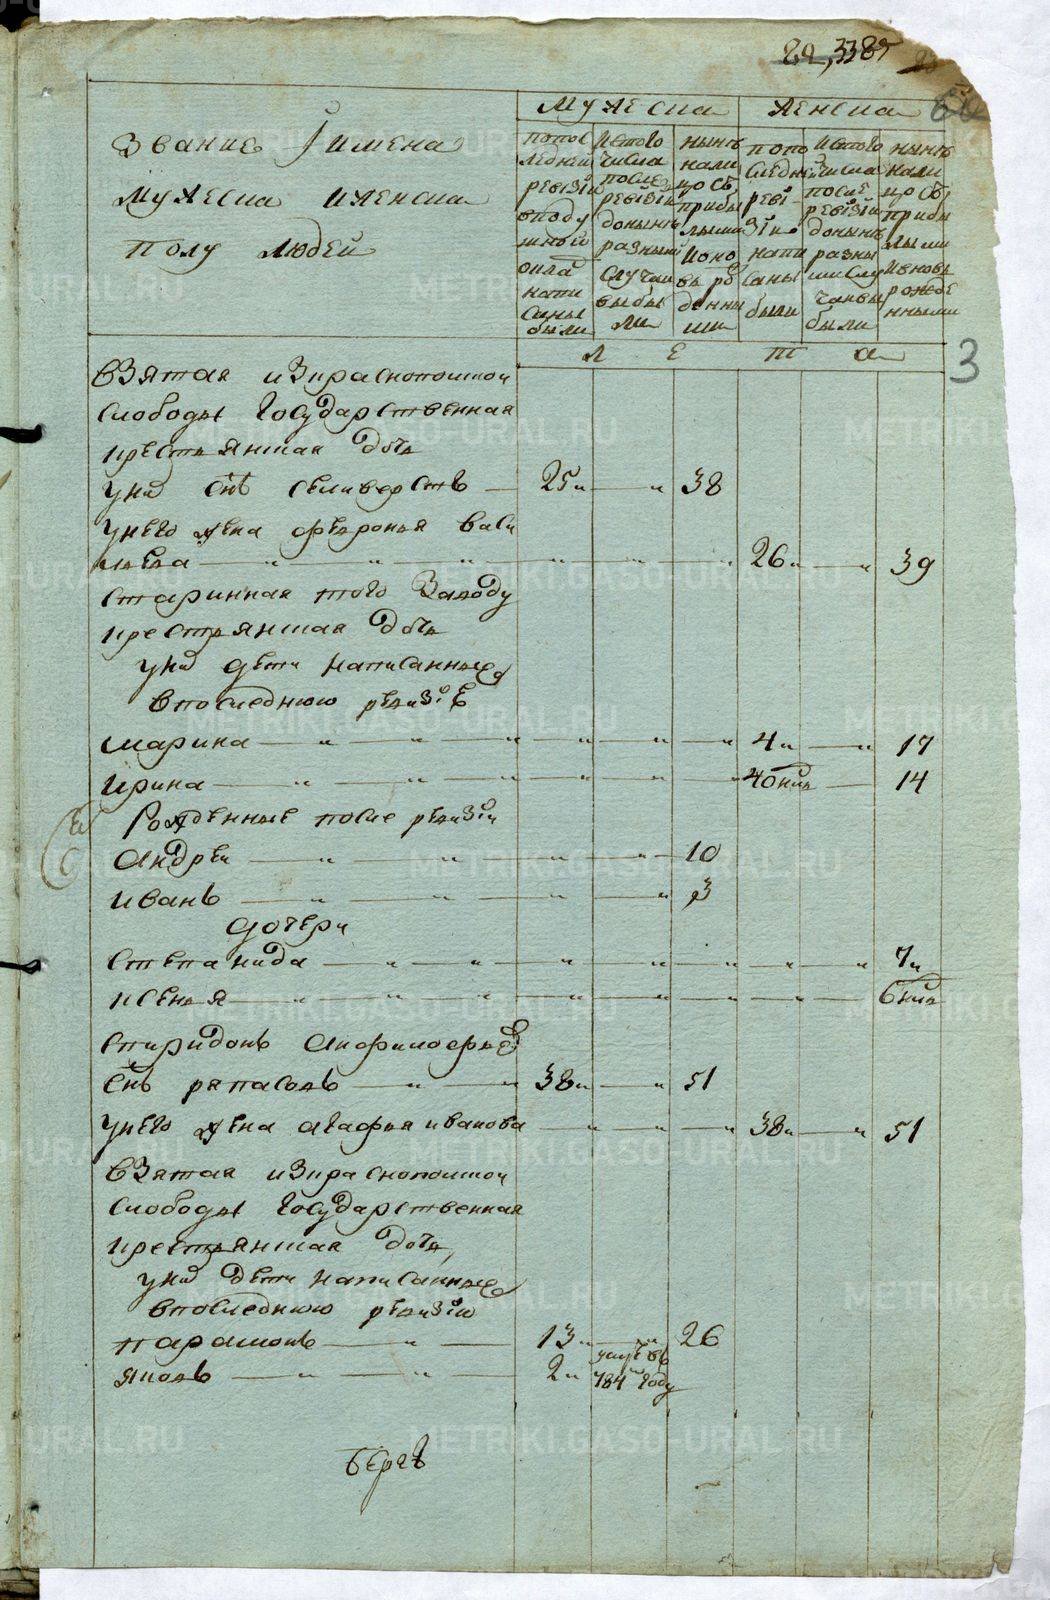 82, 3385
мужеска
женска
звание и имена
мужеска и женска
полу людей
попос
ледней
ревизии
вподу
шной
окла
напи
саны
были
истого
числа
после
ревизии
доныне
разными
случаи
выбы
ли
ныне
нали
цо съ
прибы
лыми
ионо
вь ро
жденны
ми
попо
следне
реви
зии
напи
саны
были
истого
числа
после
ревизии
доныне
разны
ми слу
чаи вы
были
ныне
нали
цо съ
прибы
лыми
ивновь
рожде
нными
л е т а
3
взятая изкраснопольской
слободы государственная
крестьянская дочь
у них сынъ селиверстъ 25 38
у него жена февронья васи
льева 26 39
старинная того заводу
крестьянская дочь
у них дети написанные
в последнюю ревизiю
марина 4 17
ирина 40 нед 14
рожденные после ревизiи
андреи 10
иванъ 3
дочери
степанида 7
ксенья 6 нед
спиридонъ анфилофьевъ
сынъ рапасовъ 38 51
у него жена агафья иванова 38 51
взятая изкраснопольской
слободы государственная
крестьянская дочь
у них дети написанные
в последнюю ревизiю
парамонъ 13 26
яковъ 2 умре въ
784 году
бергъ
METRIKI.GASO-URAL.RU